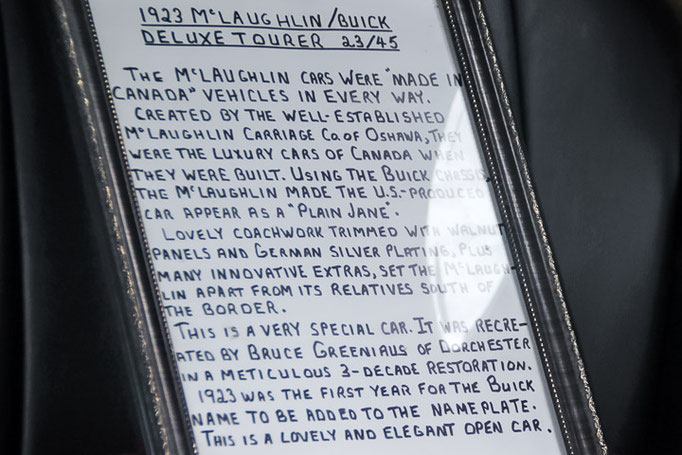 1923 McLAUGHLIN/BUICK
DELUXE TOURER 23/45
THE McLAUGHLIN CARS WERE "MADE IN
CANADA" VEHICLES IN EVERY WAY.
CREATED BY THE WELL-ESTABLISHED
McLAUGHLIN CARRIAGE Co. OF OSHAWA, THEY
WERE THE LUXURY CARS OF CANADA WHEN
THEY WERE BUILT. USING THE BUICK CHASSIS,
THE McLAUGHLIN MADE THE U.S.-PRODUCED
CAR APPEAR AS A "PLAIN JANE".
LOVELY COACHWORK TRIMMED WITH WALNUT
PANELS AND GERMAN SILVER PLATING, PLUS
MANY INNOVATIVE EXTRAS, SET THE McLAUGH-
LIN APART FROM ITS RELATIVES SOUTH OF
THE BORDER.
THIS IS A VERY SPECIAL CAR. IT WAS RECRE-
ATED BY BRUCE GREENIAUS OF DORCHESTER
IN A METICULOUS 3-DECADE RESTORATION.
1923 WAS THE FIRST YEAR FOR THE BUICK
NAME TO BE ADDED TO THE NAMEPLATE.
THIS IS A LOVELY AND ELEGANT OPEN CAR.